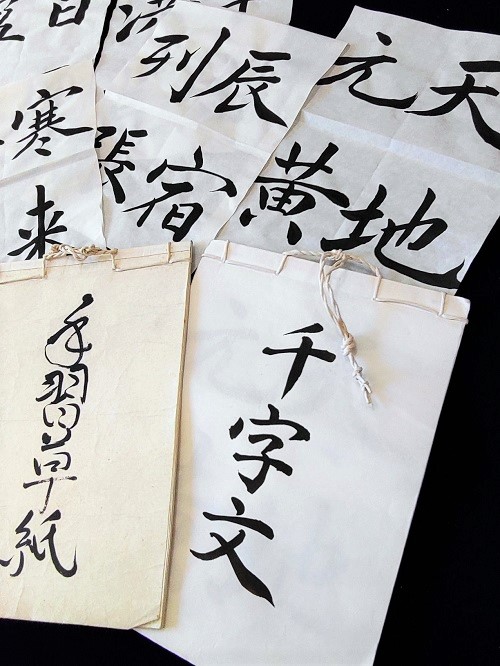 天地
元黄
辰宿
列張
日
寒来
千字文
手習草紙